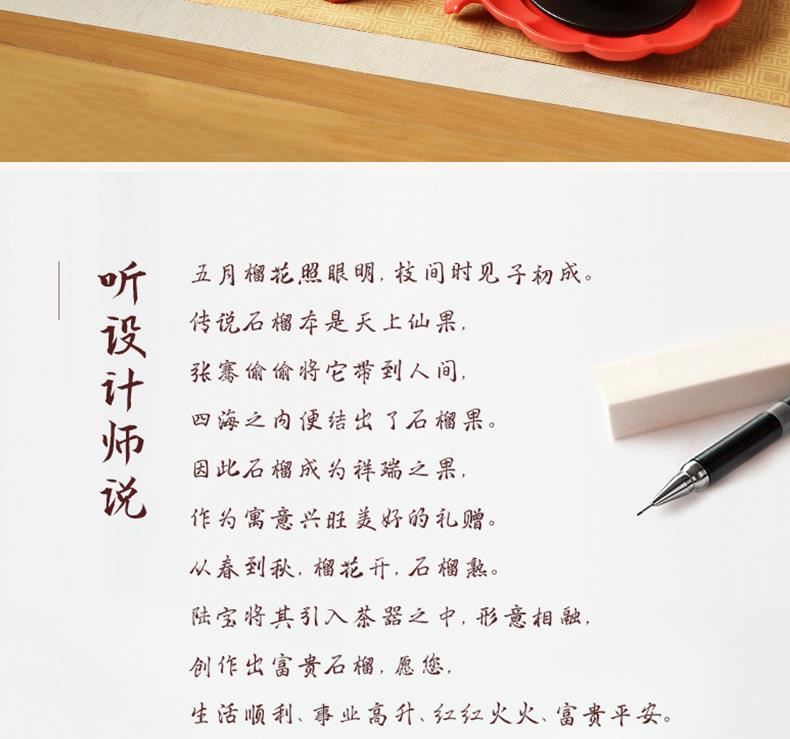 听设计师说
五月榴花照眼明,枝间时见子初成。
传说石榴本是天上仙果,
张骞偷偷将它带到人间,
四海之内便结出了石榴果。
因此石榴成为祥瑞之果,
作为寓意兴旺美好的礼赠。
从春到秋,榴花开,石榴熟。
陆宝将其引入茶器之中,形意相融,
创作出富贵石榴,愿您,
生活顺利、事业高升、红红火火、富贵平安。